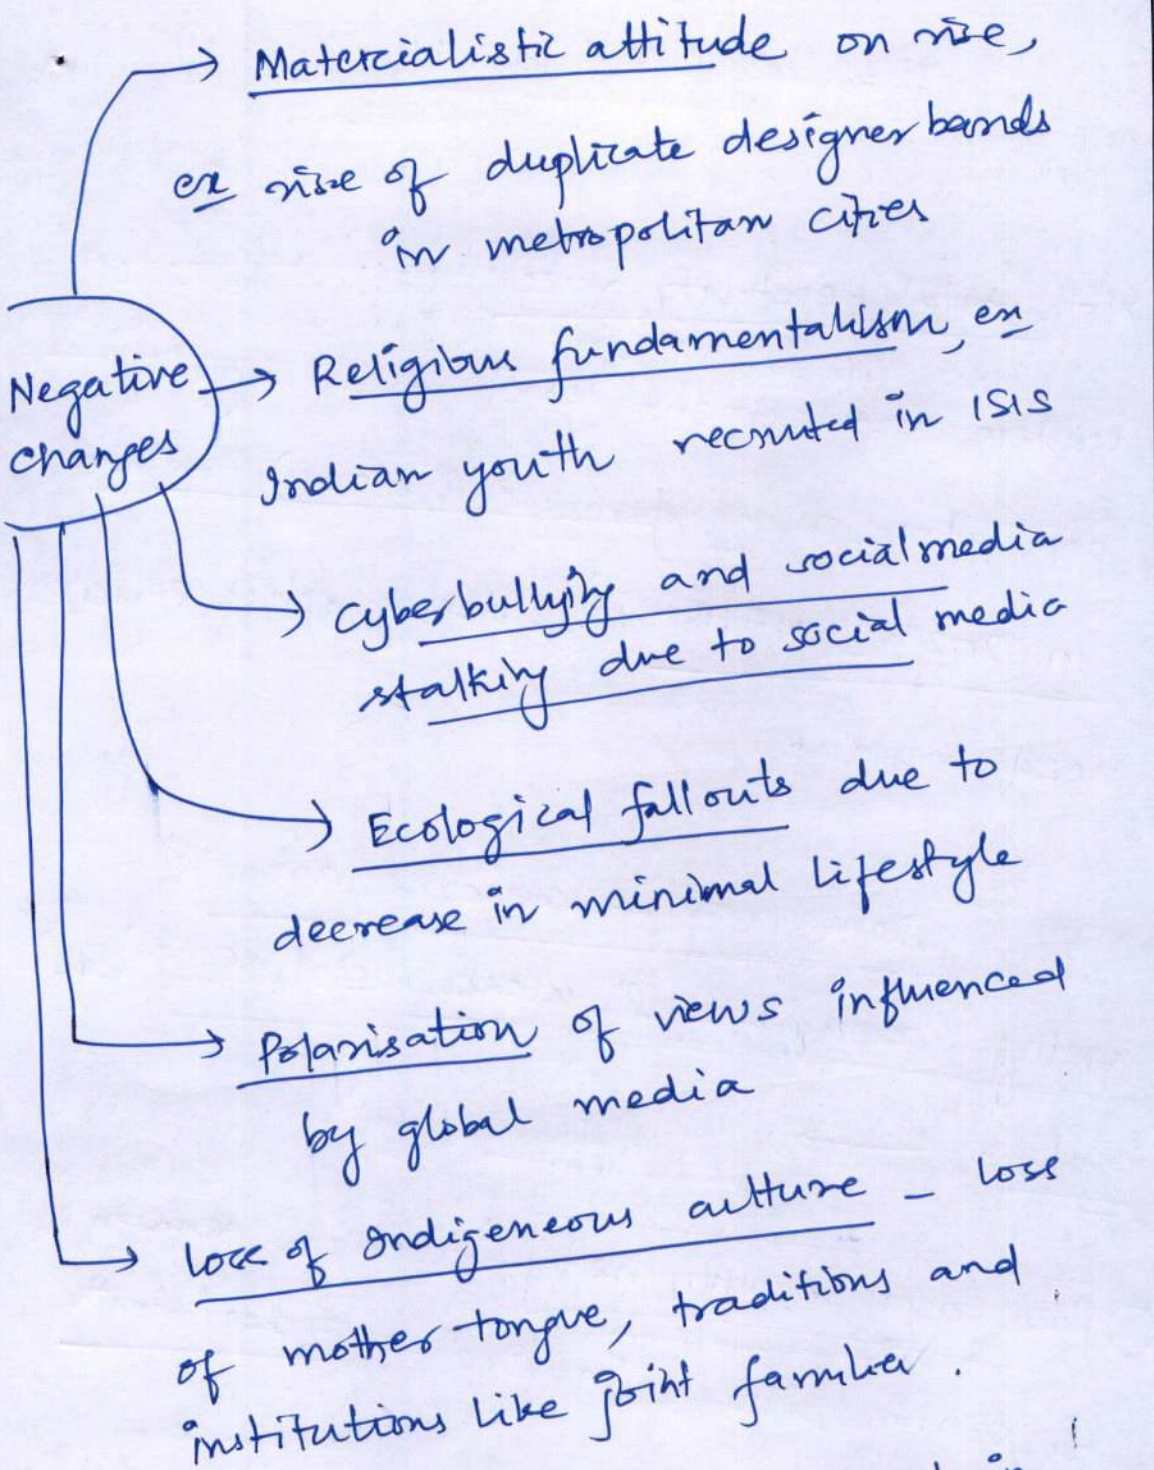 Matercialistic attitude on rise,
ex rise of duplicate designer bands
in metropolitan cities
Negative
changes
Religious fundamentalism, ex
Indian youth recruited in ISIS
Cyberbullying and social media
stalking due to social media
Ecological fallouts due to
decrease in minimal lifestyle
Polarisation of views influenced
by global media
loss of Indigeneous culture - loss
of mother tongue, traditions and
institutions like joint families.
in